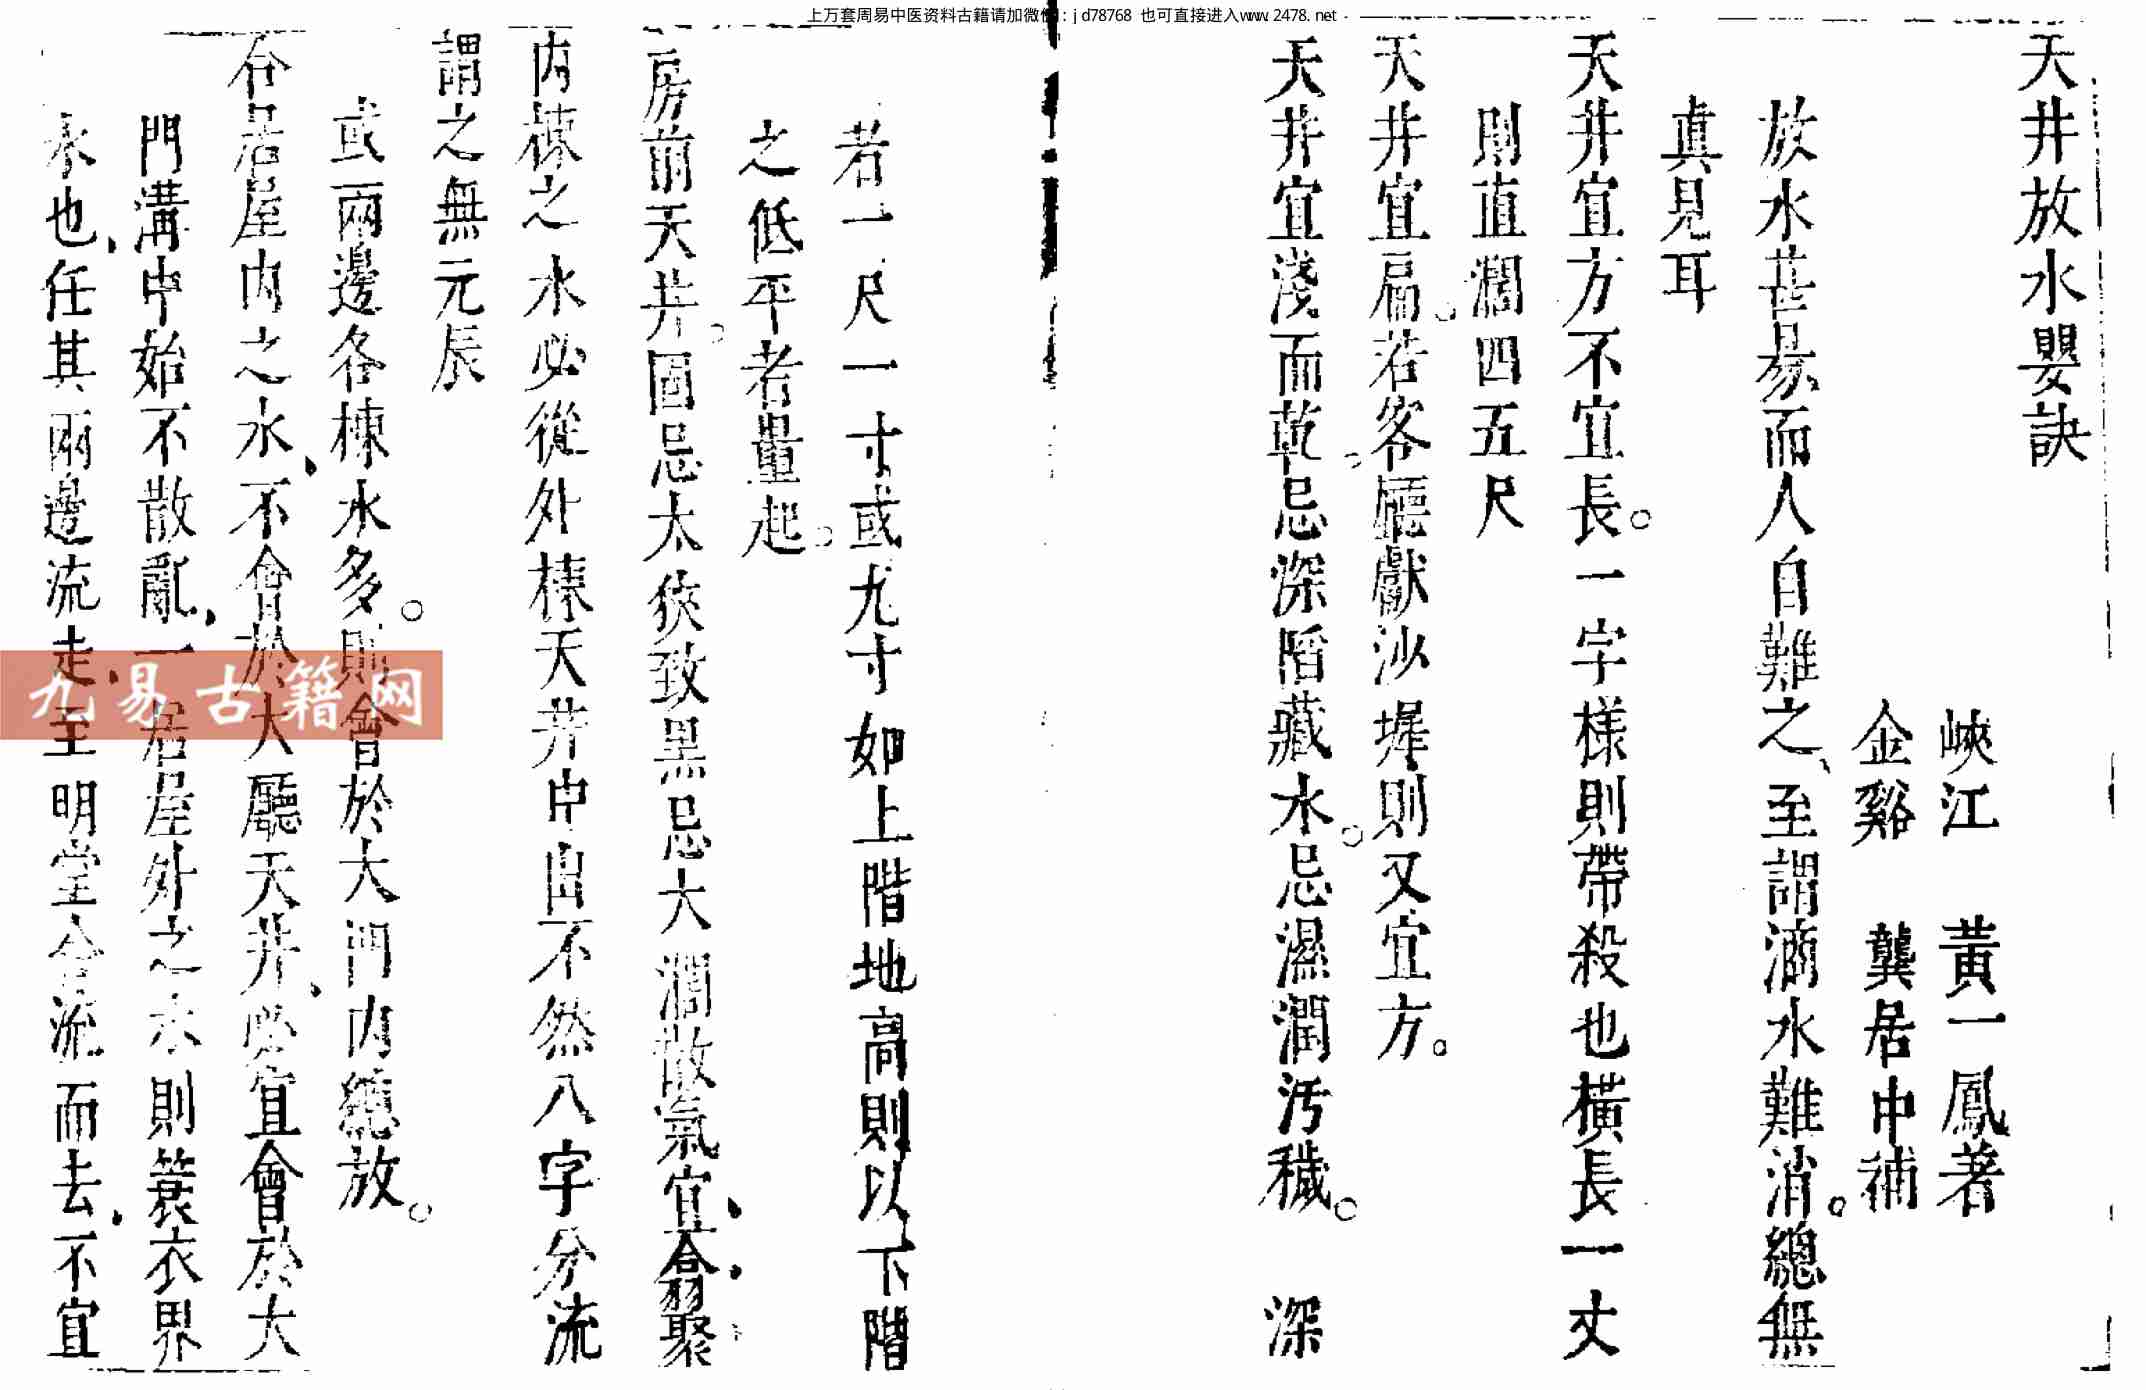 上万套周易中医资料古籍请加微信：jd78768 也可直接进入www.2478.net
天井放水嬰訣
峽江 黃一鳳著
金谿 龔居中補
放水甚易而人自難之、至謂滴水難消。總無
真見耳
天井宜方不宜長。一字樣則帶殺也橫長一丈
則直濶四五尺
天井宜扁。若客廳獻沙墀則又宜方。
天井宜淺而乾。忌深陷藏水。忌濕潤汚穢。 深
若一尺一寸或九寸如上階地高則以下階
之低平者量起。
房前天井。固忌太狹致黑忌大濶散氣宜、翕、聚、
内棟之水必從外棟天井中出不然八字分流
謂之無元辰
或兩邊各棟水多。則會於大門内總放。
各居屋内之水、不會於大廳天井、必宜會於大
門溝中始不散亂、一居屋外之水則簑衣界
水也、任其兩邊流走、至明堂會流而去、不宜
九易古籍网